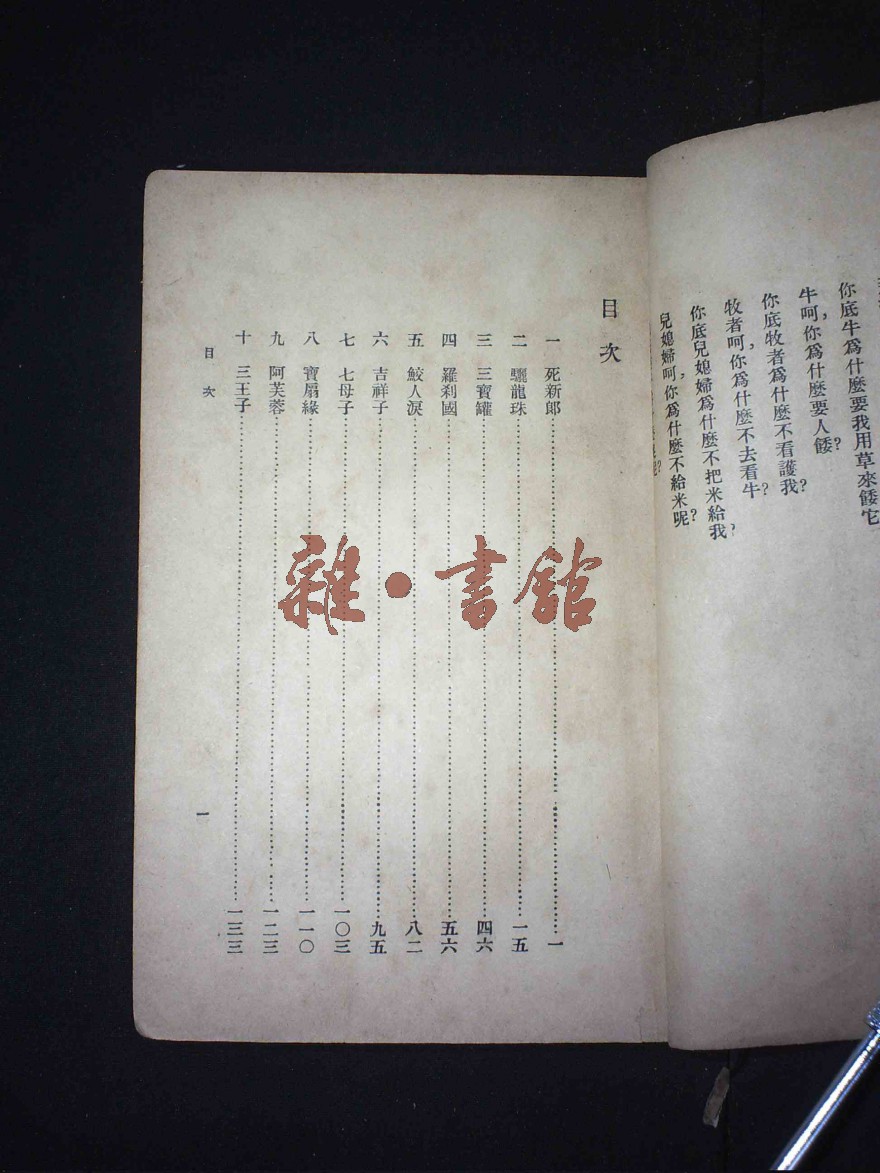 你底牛爲什麽要我用草來餧它
牛呵，你爲什麽要人餧？
你底牧者爲什麽不看護我？
牧者呵，你爲什麽不去看牛？
你底兒媳婦爲什麽不把米給我？
兒媳婦呵，你爲什麽不給米呢？
目次
一 死新郎 一
二 驪龍珠 一五
三 三寶罐 四六
四 羅刹國 五六
五 鮫人淚 八二
六 吉祥子 九五
七 七母子 一〇三
八 寶扇緣 一一〇
九 阿芙蓉 一二三
十 三王子 一三三
目次 一
雜·書館